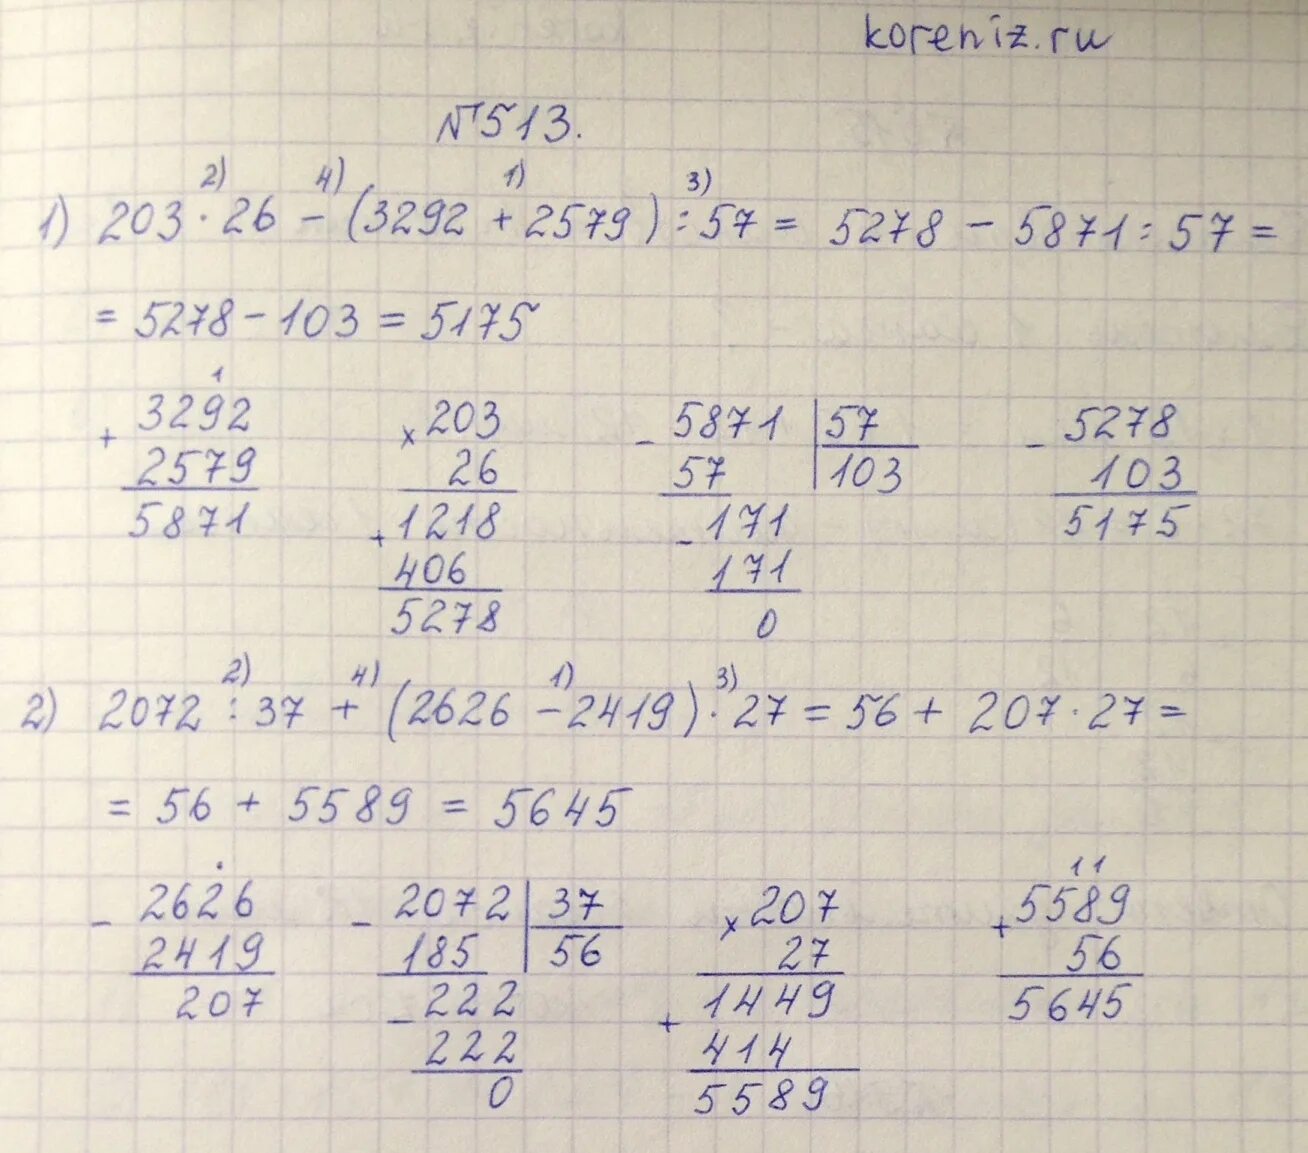 koreniz.ru
№513.
2) 4) 1) 3)
1) 203 · 26 - (3292 + 2579) : 57 = 5278 - 5871 : 57 =
= 5278 - 103 = 5175
1
+ 3292
2579
5871
× 203
26
+ 1218
406
5278
- 5871 | 57
57 103
- 171
171
0
- 5278
103
5175
2) 4) 1) 3)
2) 2072 : 37 + (2626 - 2419) · 27 = 56 + 207 · 27 =
= 56 + 5589 = 5645
.
- 2626
2419
207
- 2072 | 37
185 56
- 222
222
0
× 207
27
+ 1449
414
5589
11
+ 5589
56
5645